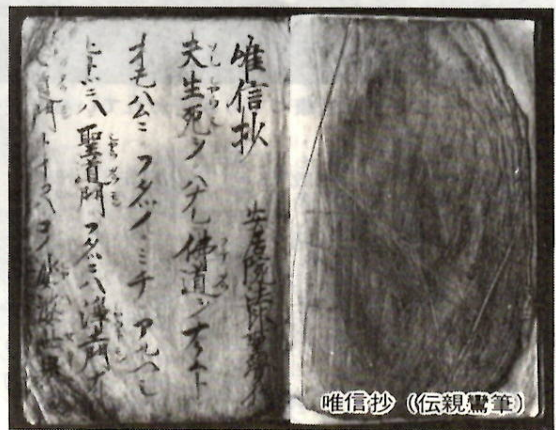 唯信抄 安居院法印聖覚作
夫生死ヲハナレ佛道ヲナラムト
オモハムニフタツノミチアルヘシ
ヒトツニハ聖道門フタツニハ浄土門ナリ
聖道門トイフハコノ娑婆世界
唯信抄（伝親鸞筆）